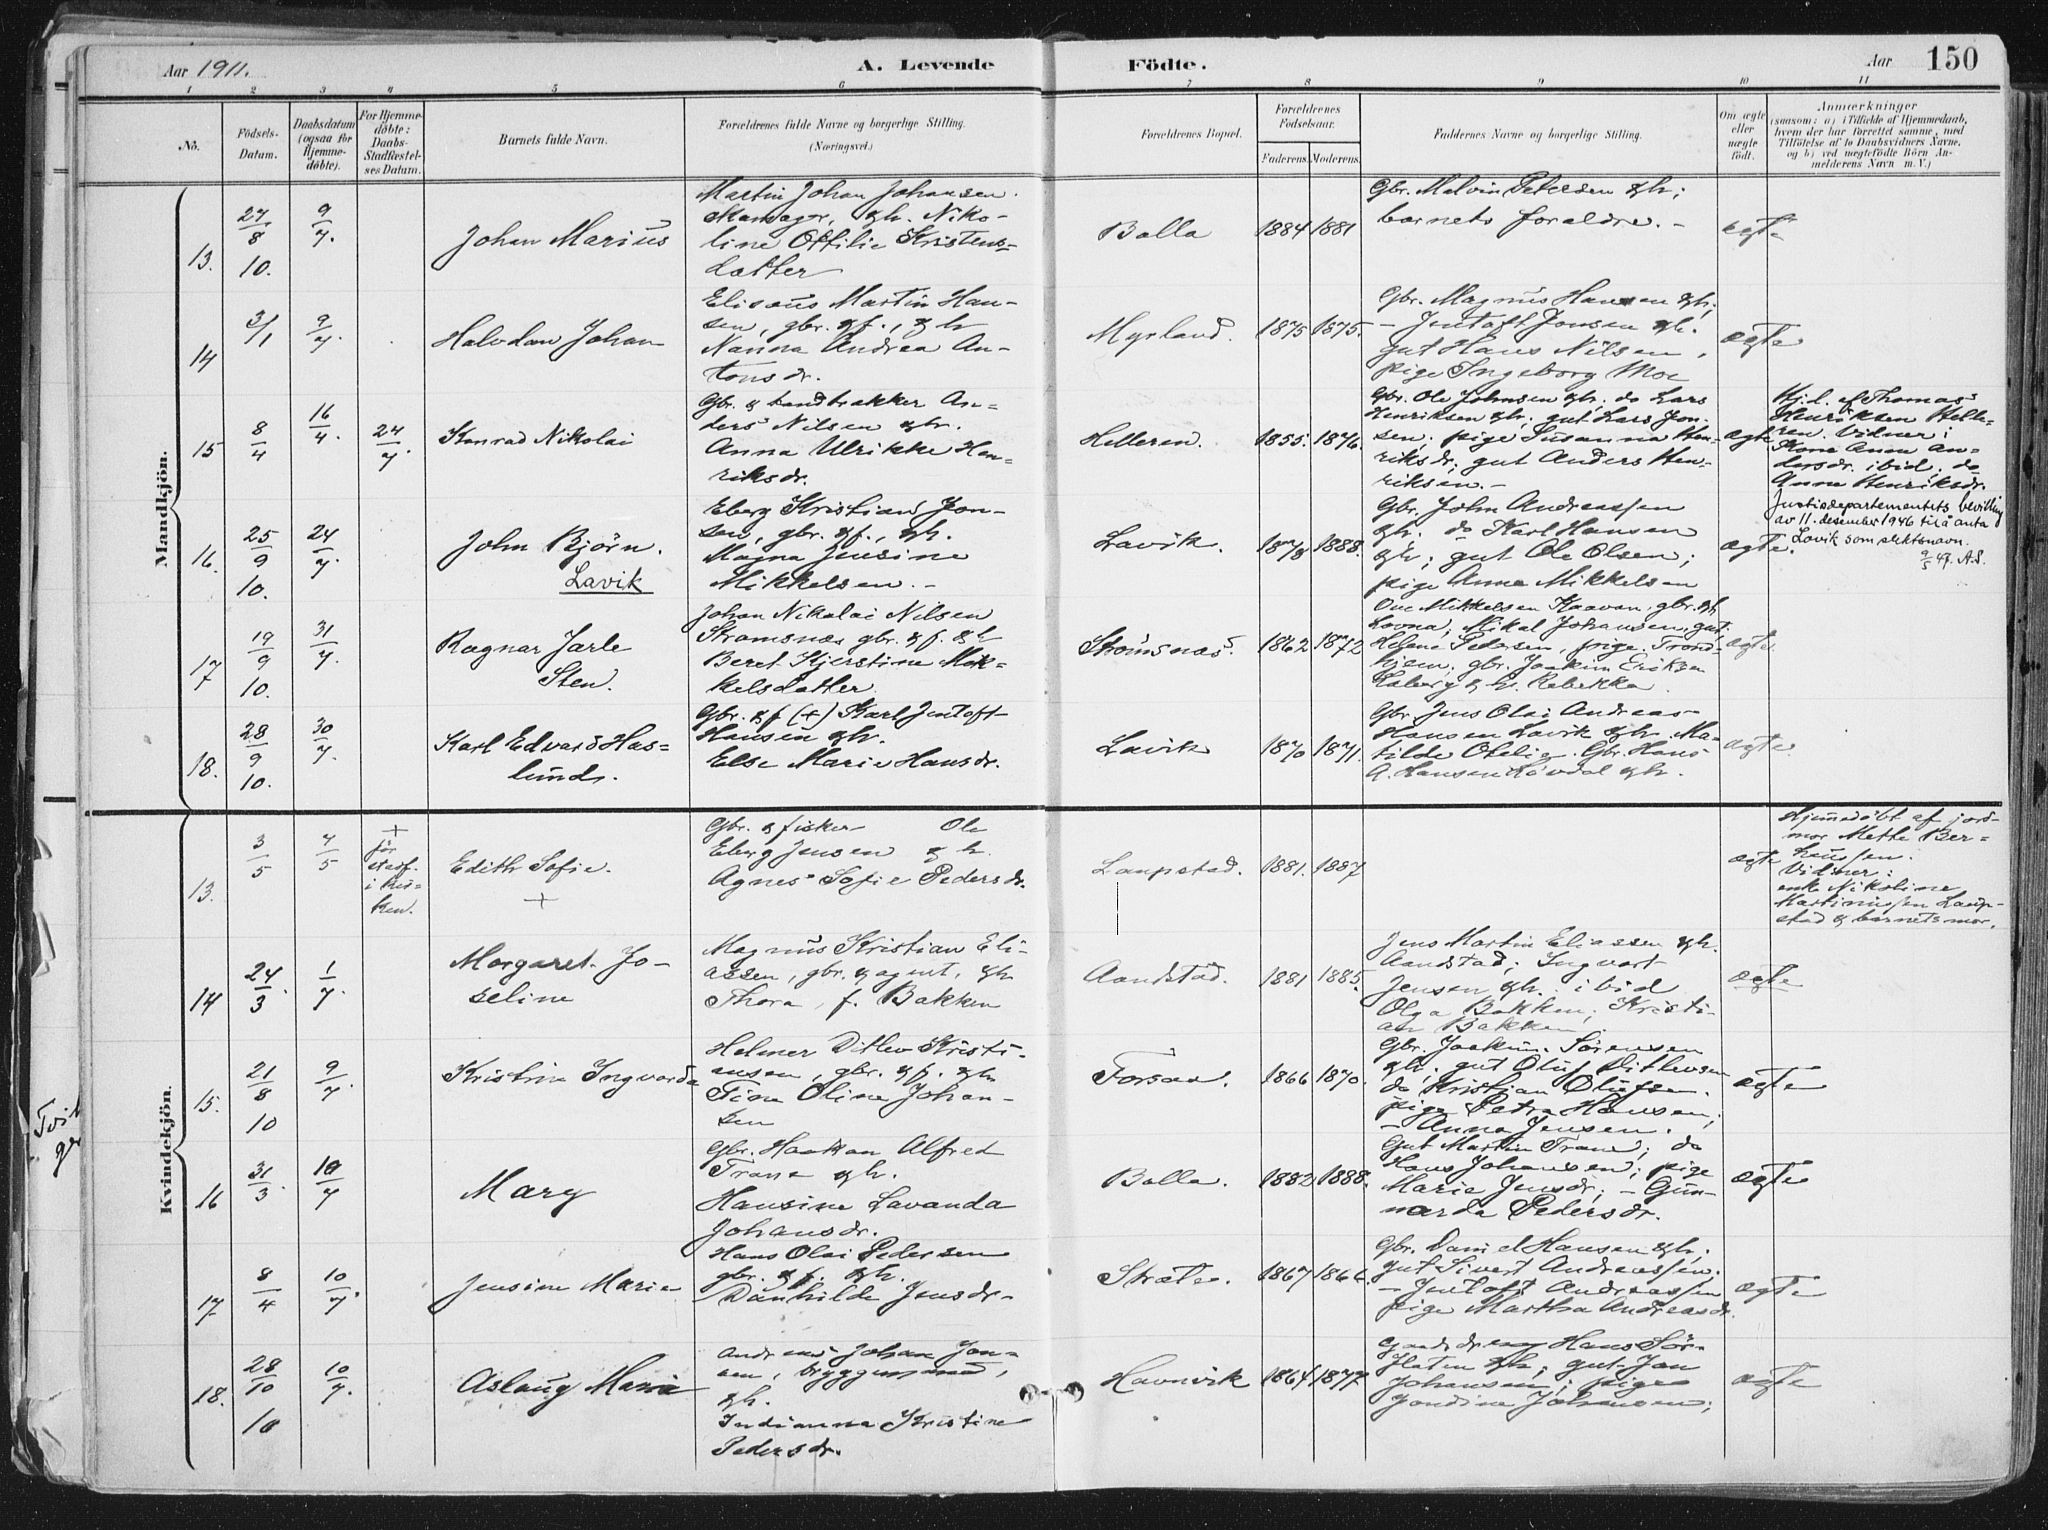 Aar 1911.
A. Levende
Födte.
Aar
150
1 2 3 4 5 6 7 8 9 10 11
No.
Födsels-
Datum.
Daabsdatum
(ogsaa for
Hjemme-
døbte).
For Hjemme-
døbte:
Daabs-
Stadfæstel-
ses Datum.
Barnets fulde Navn.
Forældrenes fulde Navne og borgerlige Stilling.
(Næringsvei.)
Forældrenes Bopæl.
Forældrenes
Födselsaar.
Faderens.
Moderens.
Faddernes Navne og borgerlige Stilling.
Om ægte
eller
uægte
födt.
Anmærkninger
(saasom: a) i Tilfælde af Hjemmedaab,
hvem der har forrettet samme, med
Tilföielse af to Daabsvidners Navne,
og b) ved uægtefödte Börn An-
melderens Navn m. V.)
Mandkjön.
13.
27/8
10.
9/7.
Johan Marius
Martin Johan Johansen
gh. Niko-
line Ottilie Kristens-
datter
Bolla
1884
1881
Gbr. Malvin Petersen & h;
barnets foraldre. -
ægte
14
3/1
9/7.
Halvdan Johan
Elisæus Martin Han-
sen, gbr. & f., & h
Nanna Andrea An-
tonsdr.
Myrland.
1875
1875.
Gbr. Magnus Hansen & h;
- Jentoft Jonsen & h.
gut Hans Nilsen,
pige Ingeborg Moe
ægte
15
8/4
16/4.
24/7
Konrad Nikolai
Gbr. & handtrakker An-
ders Nilsen & h.
Anna Ulrikke Hen-
riksdr.
Helleren.
1855.
1876.
Gbr. Ole Johnsen & h. do Lars
Henriksen & h; gut Lars Jon-
sen; pige Susanna Hen-
riksdr; gut Anders Hen-
riksen. -
ægte
Hj.d. af Thomas
Henriksen Helle-
ren. Vidner:
Kone Anna An-
dersdr. ibid. do
Anna Henriksdr.
16.
25/9
10.
24/7
John Björn.
Lavik
Eberg Kristian Jon-
sen, gbr. & f., & h.
Magna Jensine
Mikkelsen. -
Lavik.
1878
1888.
Gbr. John Andreassen
& h. do Karl Hansen
& h; gut Ole Olsen;
pige Anna Mikkelsen
ægte.
Justisdepartementets bevilling
av 11. desember 1946 til å anta
Lavik som slektsnavn.
9/5 47. A.S.
17
19/9
10.
31/7.
Ragnar Jarle
Sten.
Johan Nikolai Nilsen
Strømsnæs gbr. & f. & h
Beret Kjerstine Mik-
kelsdatter.
Strömsnæs.
1862
1872
Ove Mikkelsen Kaavan, gbr. & h
Lovna; Mikal Johansen, gut;
Helene Pedersen, pige. Trond-
hjem; gbr. Joakim Eriksen
Kaberg & h. Rebekka.
ægte.
18.
28/9
10.
30/7.
Karl Edvard Has-
lund.
Gbr. & f (+) Karl Jentoft
Hansen & h.
Else Marie Hansdr.
Lavik
1870
1871.
Gbr. Jens Olai Andreas
Hansen Lavik & h. Ma-
tilde Otelie. Gbr. Hans
A. Hansen Lövdal & h.
ægte.
Kvindekjön.
13.
3/5
4/5
+
før
stadf.
i kir-
ken.
Edith Sofie.
+
Gbr. & fisker Ole
Eberg Jensen & h.
Agnes Sofie Pedersdr.
Laupstad.
1881.
1887
ægte
Hjemedöbt af jord-
mor Mette Ber-
Vidner:
enke Nikoline
Martinussen Laup-
stad & barnets mor.
14
24/3.
1/7.
Margaret Jo-
seline
Magnus Kristian Eli-
assen, gbr. & agent, & h
Thora, f. Bakken
Aandstad.
1881
1885.
Jens Martin Eliassen & h.
Aandstad; Ingvart
Jensen & h. ibid
Olga Bakken; Kristi-
an Bakken.
ægte
15.
21/8
10
9/7
Kristine Ingvarda
Helmer Ditlev Kristi-
ansen, gbr. & f. & h
Tina Oline Johan-
sen
Forsaa.
1866
1870.
Gbr. Joakim Sørensen
& h; gut Oluf Ditlevsen
do Kristian Olufsen.
pige Petra Hansen;
- Anna Jensen.
ægte
16
31/3.
10/7
Mary
Gbr. Haakon Alfred
Trane & h.
Hansine Lavanda
Johansdr.
Bolla.
1882
1888.
Gut Martin Trane; do
Hans Johansen; pige
Marie Jensdr; - Gun-
narda Pedersdr.
ægte
17.
8/4
10/7.
Jensine Marie
Hans Olai Pedersen
gbr. & f. & h.
Danhilde Jensdr-
Stræte.
1867
1866.
Gbr. Daniel Hansen & h;
gut Sivert Andreassen;
- Jentoft Andreassen
pige Martha Andreasdr.
ægte
18.
28/10
10
10/7.
Aslaug Marie
Andreas Johan Jon-
sen, bryggemand,
& h.
Indianna Kristine
Pedersdr.
Havnvik
1864
1877.
Hans Sör-
flaten & h; gut Jon
Johansen; pige
Jondine Johansen;
ægte
Tvil